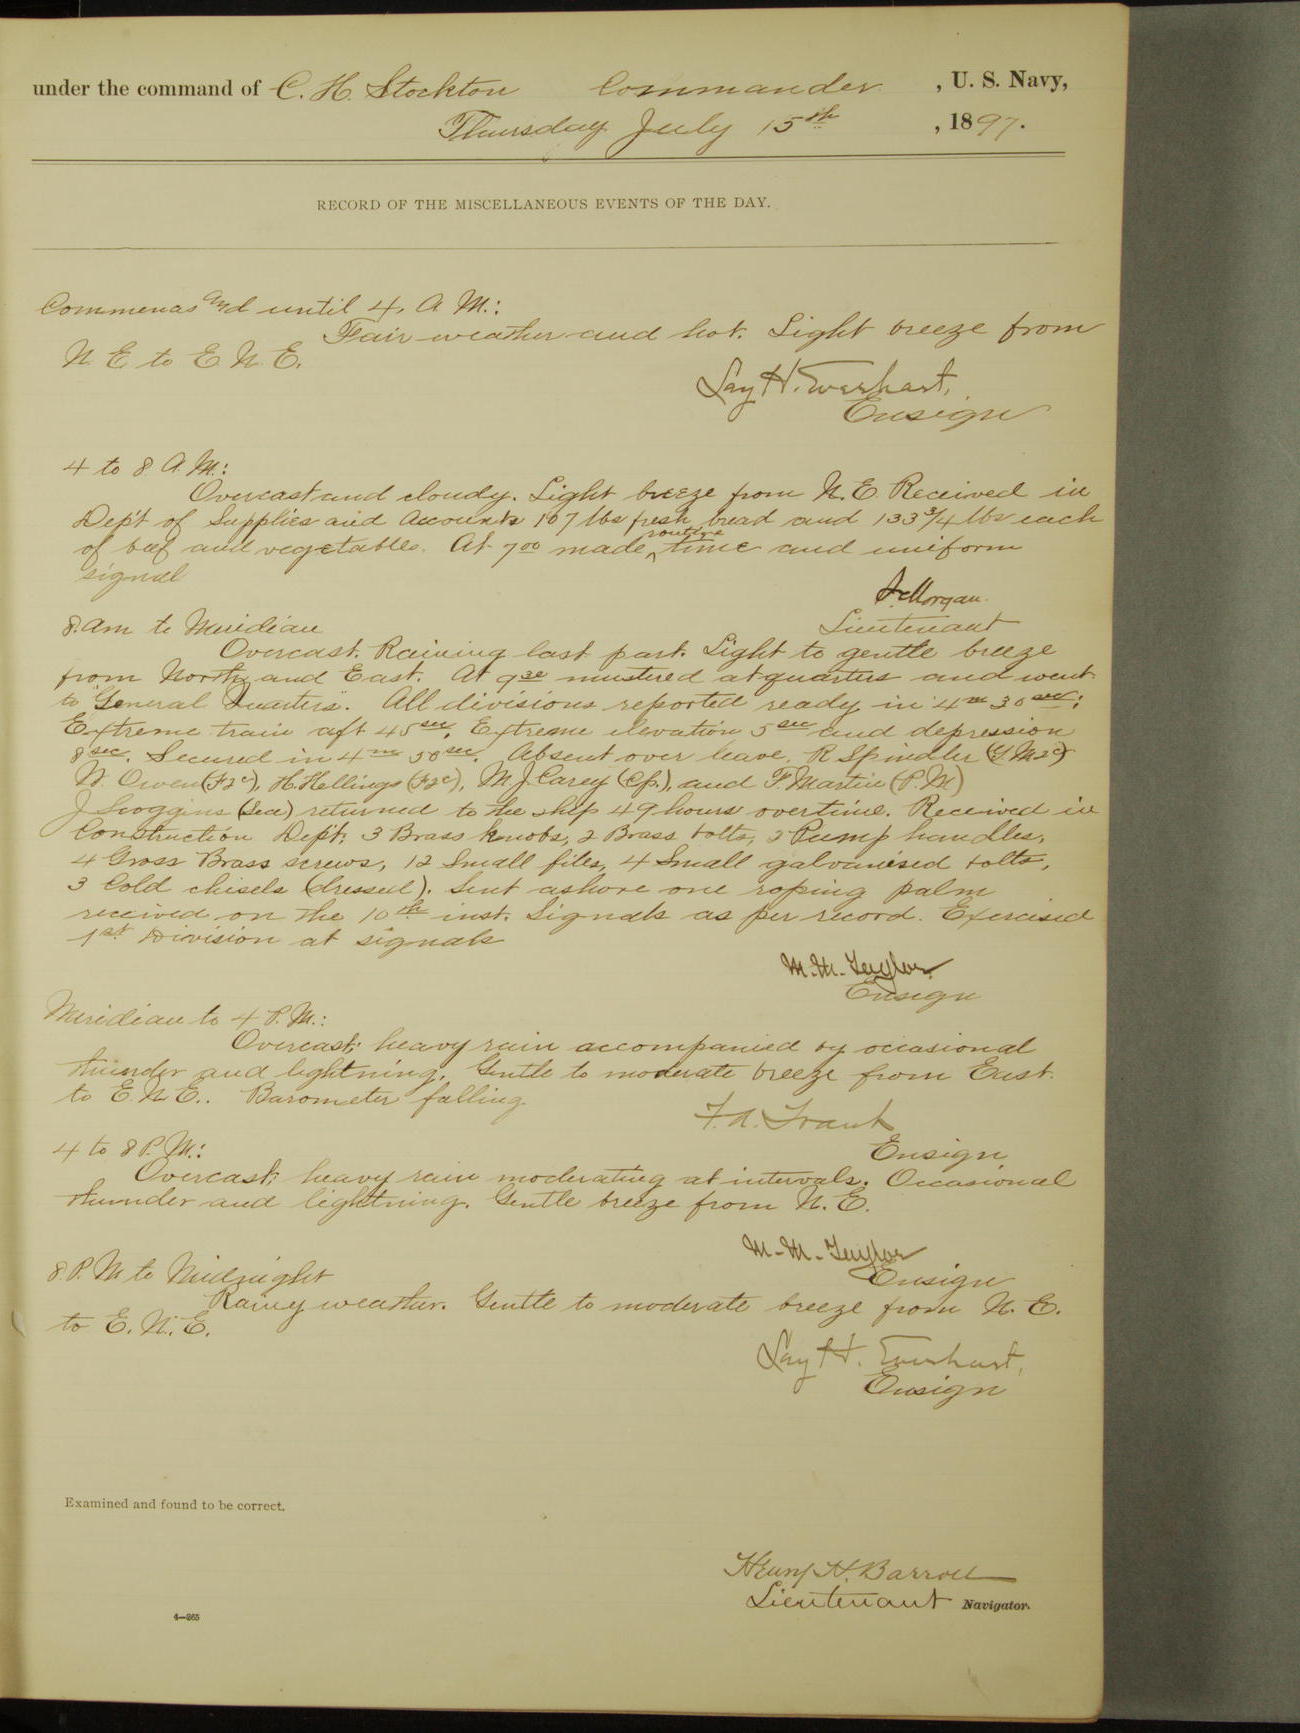 under the command of C. H. Stockton Commander , U. S. Navy,
Thursday July 15th , 1897.
RECORD OF THE MISCELLANEOUS EVENTS OF THE DAY.
Commences and until 4, A M.:
Fair weather and hot. Light breeze from
N E to E N. E.
Lay H. Everhart,
Ensign
4 to 8 A. M.:
Overcast and cloudy. Light breeze from N. E. Received in
Dep't of Supplies and Accounts 107 lbs fresh bread and 133 3/4 lbs each
of beef and vegetables. At 7 00 made routine time and uniform
signal
J. Morgan.
Lieutenant
8. am to Meridian
Overcast. Raining last part. Light to gentle breeze
from North and East. At 9 30 mustered at quarters and went
to "General Quarters". All divisions reported ready in 4 m 30 sec;
Extreme train aft 45 sec. Extreme elevation 5 sec and depression
8 sec. Secured in 4 m 50 sec. Absent over leave, R Spindler (G.M2c)
W. Owen (F2c), H. Hellings (F2c), M. J. Carey (Cp.), and F. Martin (P. M)
J Scoggins (Sea) returned to the ship 49 hours overtime. Received in
Construction Dep't; 3 Brass knobs, 2 Brass bolts, 2 Pump handles,
4 Gross Brass screws, 12 Small files, 4 Small galvanised bolts,
3 Cold chisels (dressed). Sent ashore one roping palm
received on the 10th inst. Signals as per record. Exercised
1st Division at signals
M. M. Taylor
Ensign
Meridian to 4 P. M.:
Overcast; heavy rain accompanied by occasional
thunder and lightning. Gentle to moderate breeze from East.
to E. N. E.. Barometer falling.
F. A. Traut
Ensign
4 to 8 P. M.:
Overcast; heavy rain moderating at intervals. Occasional
thunder and lightning. Gentle breeze from N. E.
M. M. Taylor
Ensign
8 P. M to Midnight
Rainy weather. Gentle to moderate breeze from N. E.
to E. N. E.
Lay H. Everhart,
Ensign
Examined and found to be correct.
Henry H. Barroll
Lieutenant Navigator.
4—265